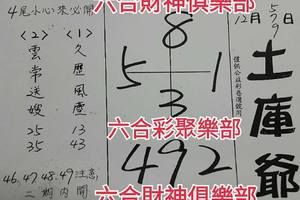 4尾小心來必開
〈2〉 〈1〉
雲常送嫂
久歷風塵
25 13
35 43
46.47.48.49注意
二期内開
六合財神俱樂部
8
5 1
3
六合彩聚樂部
492
六合財神俱樂部
12月5/7/9日
僅供公益彩卷選號用
土庫爺